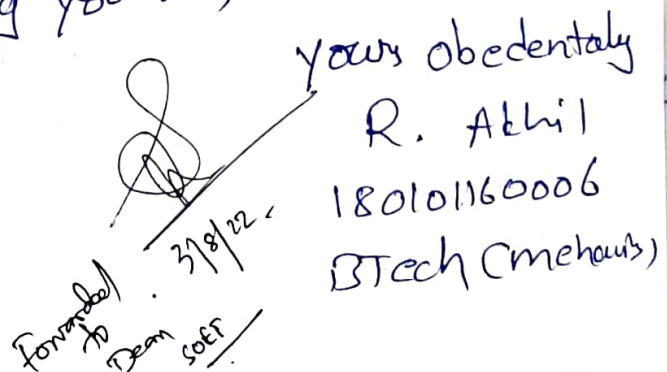 yours obedentaly
R. Akhil
180101160006
BTech (
3/8/22.
Forwarded
to
Dean
SOET